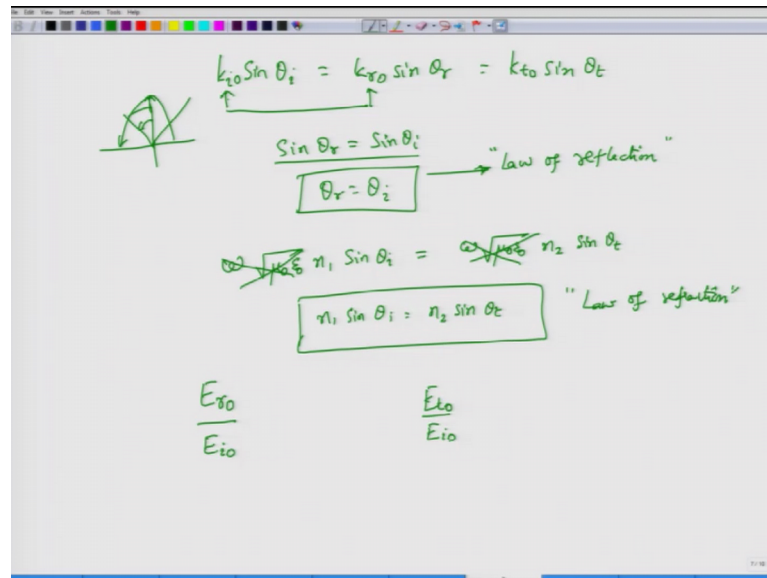 File Edit View Insert Actions Tools Help
k_{i0} Sin θ_i = k_{r0} sin θ_r = k_{t0} sin θ_t
Sin θ_r = Sin θ_i
θ_r = θ_i "Law of reflection"
ω √μ_0ε_0 n_1 Sin θ_i = ω √μ_0ε_0 n_2 sin θ_t
n_1 sin θ_i = n_2 sin θ_t "Law of refraction"
E_{r0} / E_{i0} E_{t0} / E_{i0}